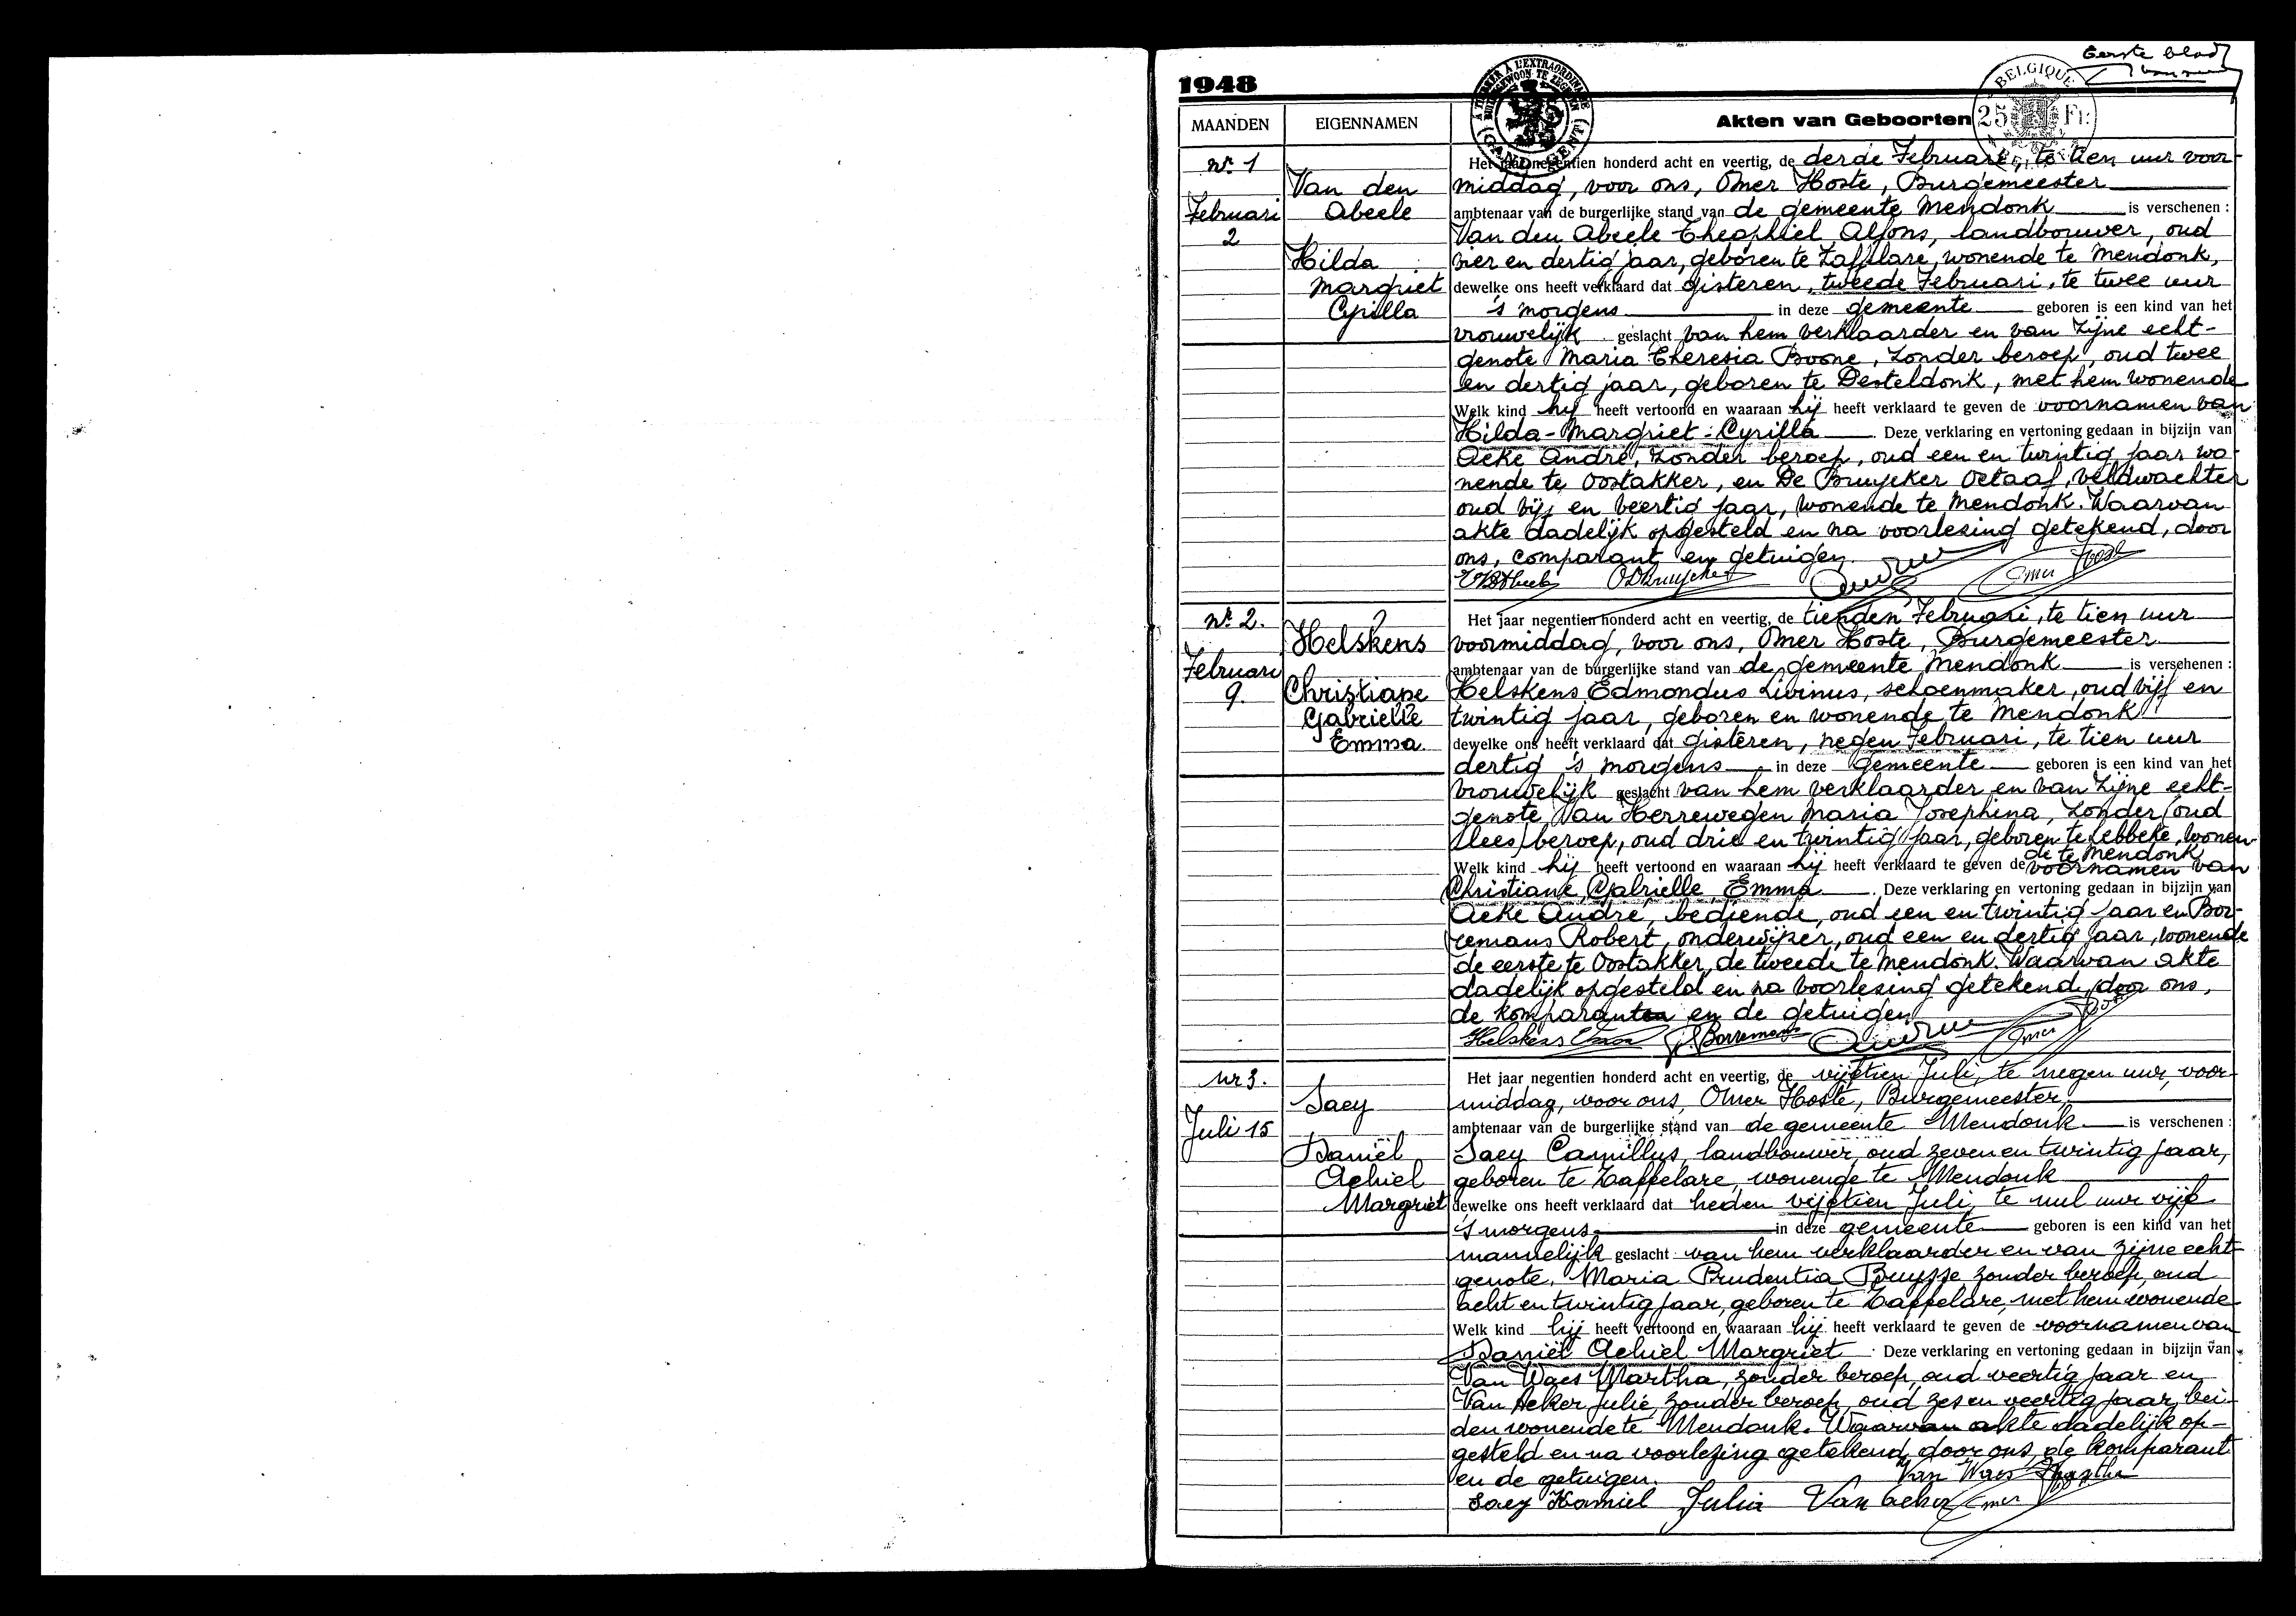 Eerste blad
1948
A TIMBRER A L'EXTRAORDINAIRE
BUITENGEWOON TE ZEGELEN
(GAND) (GENT)
BELGIQUE
25 Fr.
MAANDEN EIGENNAMEN Akten van Geboorten
Nr. 1
Februari
2
Van den
Abeele
Hilda
Margriet
Cyrilla
Het jaar negentien honderd acht en veertig, de derde Februari, te tien uur voor-
middag, voor ons, Omer Hoste, Burgemeester
ambtenaar van de burgerlijke stand van de gemeente Mendonk is verschenen :
Van den Abeele Theophiel Alfons, landbouwer, oud
vier en dertig jaar, geboren te Zaffelare, wonende te Mendonk,
dewelke ons heeft verklaard dat gisteren, tweede Februari, te twee uur
's morgens in deze gemeente geboren is een kind van het
vrouwelijk geslacht van hem verklaarder en van zijne echt-
genote Maria Theresia Boone, zonder beroep, oud twee
en dertig jaar, geboren te Desteldonk, met hem wonende
Welk kind hij heeft vertoond en waaraan hij heeft verklaard te geven de voornamen van
Hilda-Margriet-Cyrilla. Deze verklaring en vertoning gedaan in bijzijn van
Acke André, zonder beroep, oud een en twintig jaar wo-
nende te Oostakker, en De Bruycker Octaaf, veldwachter
oud vijf en veertig jaar, wonende te Mendonk. Waarvan
akte dadelijk opgesteld en na voorlezing getekend, door
ons, comparant en getuigen.
Omer Hoste
Nr. 2.
Februari
9.
Helskens
Christiane
Gabrielle
Emma.
Het jaar negentien honderd acht en veertig, de tienden Februari, te tien uur
voormiddag, voor ons, Omer Hoste, Burgemeester
ambtenaar van de burgerlijke stand van de gemeente Mendonk is verschenen :
Helskens Edmondus Livinus, schoenmaker, oud vijf en
twintig jaar, geboren en wonende te Mendonk
dewelke ons heeft verklaard dat gisteren, negen Februari, te tien uur
dertig 's morgens in deze gemeente geboren is een kind van het
vrouwelijk geslacht van hem verklaarder en van zijne echt-
genote Van Herrewegen Maria Josephina, zonder (oud
lees) beroep, oud drie en twintig jaar, geboren te Lebbeke, wonen-
de te Mendonk
Welk kind hij heeft vertoond en waaraan hij heeft verklaard te geven de voornamen van
Christiane, Gabrielle, Emma. Deze verklaring en vertoning gedaan in bijzijn van
Acke André, bediende, oud een en twintig jaar en Bor-
remans Robert, onderwijzer, oud een en dertig jaar, wonende
de eerste te Oostakker, de tweede te Mendonk. Waarvan akte
dadelijk opgesteld en na voorlezing getekend, door ons,
de komparanten en de getuigen
Helskens R. Borremans Omer
Nr 3.
Juli 15
Saey
Daniël
Achiel
Margriet
Het jaar negentien honderd acht en veertig, de vijftien Juli, te negen uur, voor-
middag, voor ons, Omer Hoste, Burgemeester,
ambtenaar van de burgerlijke stand van de gemeente Mendonk is verschenen :
Saey Camillus, landbouwer, oud zeven en twintig jaar,
geboren te Zaffelare, wonende te Mendonk
dewelke ons heeft verklaard dat heden vijftien Juli, te nul uur vijf
's morgens in deze gemeente geboren is een kind van het
mannelijk geslacht van hem verklaarder en van zijne echt-
genote, Maria Prudentia Bruysse zonder beroep, oud
acht en twintig jaar, geboren te Zaffelare, met hem wonende
Welk kind hij heeft vertoond en waaraan hij heeft verklaard te geven de voornamen van
Daniël Achiel Margriet. Deze verklaring en vertoning gedaan in bijzijn van
Van Waes Martha, zonder beroep, oud veertig jaar en
Van Acker Julie, zonder beroep, oud zes en veertig jaar, bei-
den wonende te Mendonk. Waarvan akte dadelijk op-
gesteld en na voorlezing getekend, door ons, de komparant
en de getuigen. Van Waes Martha
Saey Kamiel Julia Van acker Omer